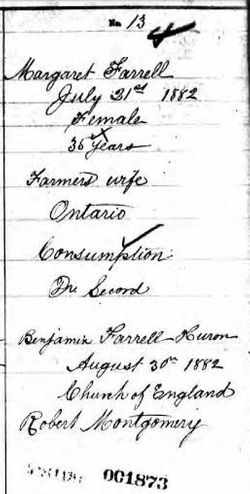 No. 13
Margaret Farrell
July 21st 1882
Female
36 years
Farmers wife
Ontario
Consumption
Dr Secord
Benjamin Farrell Huron
August 30th 1882
Church of England
Robert Montgomery
001873